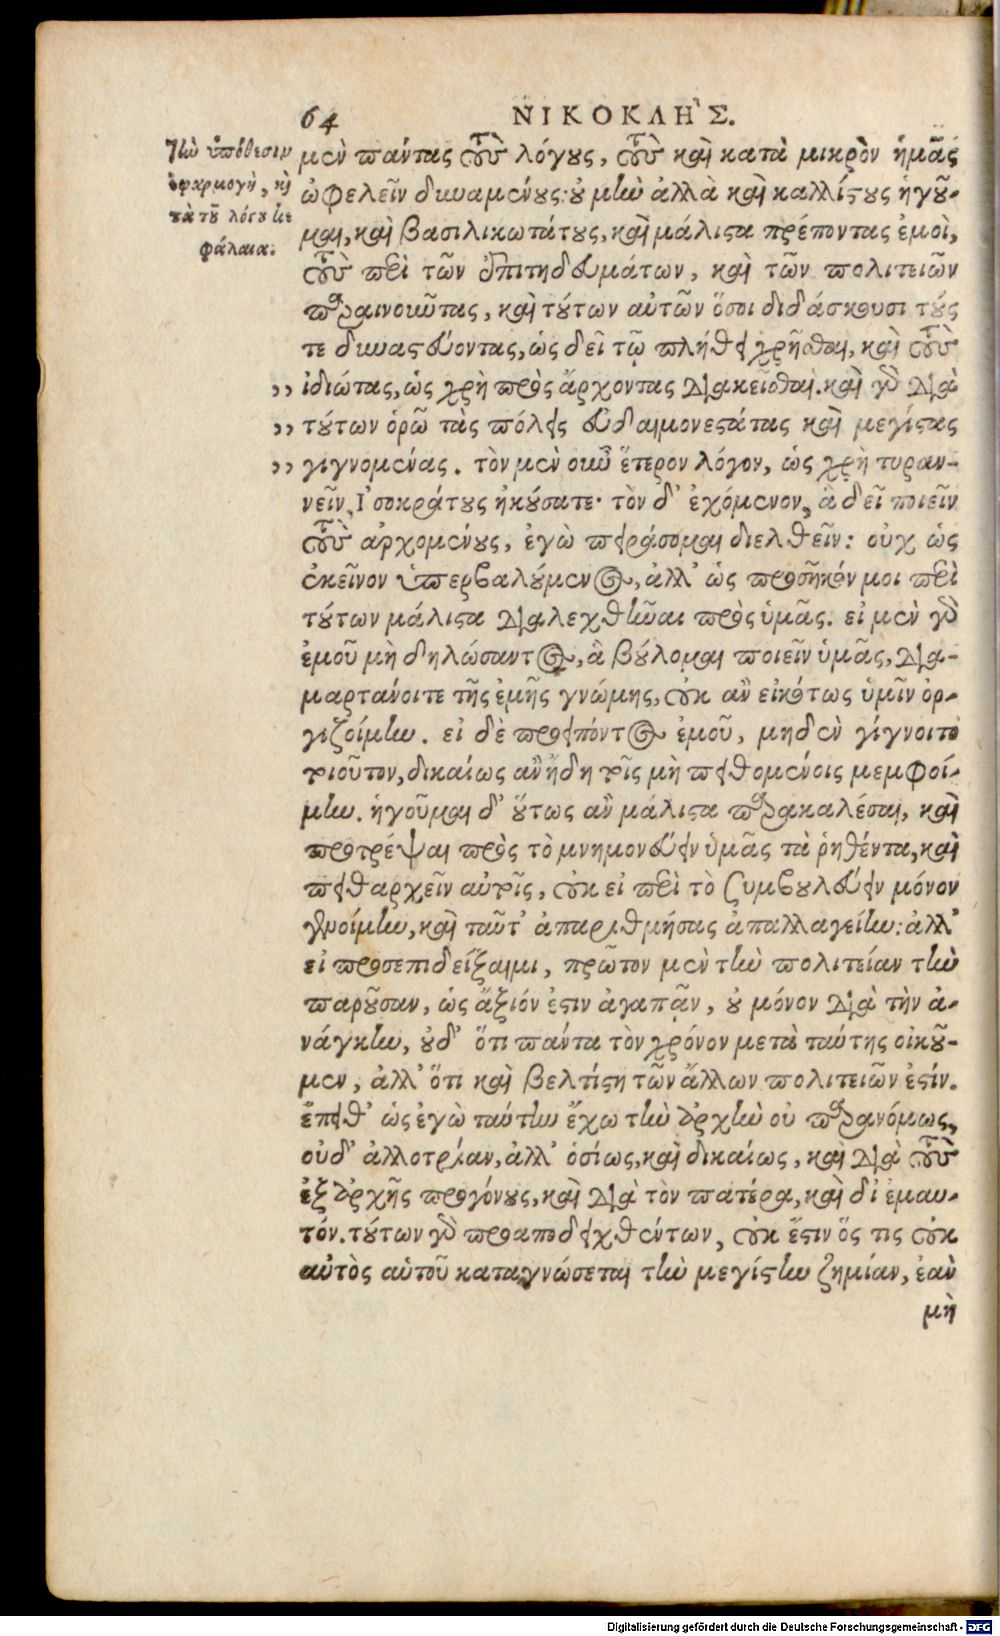 64
ΝΙΚΟΚΛΗ͂Σ.
τὴν ὑπόθεσιν
ἐφαρμογὴ, καὶ
τὰ τοῦ λόγου κε
φάλαια.
μὲν πάντας τοὺς λόγους, τοὺς καὶ κατὰ μικρὸν ἡμᾶς
ὠφελεῖν δυναμένους· οὐ μὴν ἀλλὰ καὶ καλλίστους ἡγοῦ-
μαι, καὶ βασιλικωτάτους, καὶ μάλιστα πρέποντας ἐμοὶ,
τοὺς περὶ τῶν ἐπιτηδευμάτων, καὶ τῶν πολιτειῶν
παραινοῦντας, καὶ τούτων αὐτῶν ὅσοι διδάσκουσι τούς
τε δυναστεύοντας, ὡς δεῖ τῷ πλήθει χρῆσθαι, καὶ τοὺς
,, ἰδιώτας, ὡς χρὴ πρὸς ἄρχοντας διακεῖσθαι. καὶ γὰρ διὰ
,, τούτων ὁρῶ τὰς πόλεις εὐδαιμονεστάτας καὶ μεγίστας
,, γιγνομένας. τὸν μὲν οὖν ἕτερον λόγον, ὡς χρὴ τυραν-
νεῖν, Ἰσοκράτους ἠκούσατε· τὸν δ' ἐχόμενον, ἃ δεῖ ποιεῖν
τοὺς ἀρχομένους, ἐγὼ πειράσομαι διελθεῖν: οὐχ ὡς
ἐκεῖνον ὑπερβαλούμενος, ἀλλ' ὡς προσῆκόν μοι περὶ
τούτων μάλιστα διαλεχθῆναι πρὸς ὑμᾶς. εἰ μὲν γὰρ
ἐμοῦ μὴ δηλώσαντος, ἃ βούλομαι ποιεῖν ὑμᾶς, δια-
μαρτάνοιτε τῆς ἐμῆς γνώμης, οὐκ ἂν εἰκότως ὑμῖν ὀρ-
γιζοίμην. εἰ δὲ προειπόντος ἐμοῦ, μηδὲν γίγνοιτο
τοιοῦτον, δικαίως ἂν ἤδη τοῖς μὴ πειθομένοις μεμφοί-
μην. ἡγοῦμαι δ' οὕτως ἂν μάλιστα παρακαλέσαι, καὶ
προτρέψαι πρὸς τὸ μνημονεύειν ὑμᾶς τὰ ῥηθέντα, καὶ
πειθαρχεῖν αὐτοῖς, οὐκ εἰ περὶ τὸ συμβουλεύειν μόνον
γενοίμην, καὶ ταῦτ' ἀπαριθμήσας ἀπαλλαγείην: ἀλλ'
εἰ προσεπιδείξαιμι, πρῶτον μὲν τὴν πολιτείαν τὴν
παροῦσαν, ὡς ἄξιόν ἐστιν ἀγαπᾷν, οὐ μόνον διὰ τὴν ἀ-
νάγκην, οὐδ' ὅτι πάντα τὸν χρόνον μετὰ ταύτης οἰκοῦ-
μεν, ἀλλ' ὅτι καὶ βελτίστη τῶν ἄλλων πολιτειῶν ἐστίν.
ἔπειθ' ὡς ἐγὼ ταύτην ἔχω τὴν ἀρχὴν οὐ παρανόμως,
οὐδ' ἀλλοτρίαν, ἀλλ' ὁσίως, καὶ δικαίως, καὶ διὰ τοὺς
ἐξ ἀρχῆς προγόνους, καὶ διὰ τὸν πατέρα, καὶ δι' ἐμαυ-
τόν. τούτων γὰρ προαποδειχθέντων, οὐκ ἔστιν ὅς τις οὐκ
αὐτὸς αὑτοῦ καταγνώσεται τὴν μεγίστην ζημίαν, ἐὰν
μὴ
Digitalisierung gefördert durch die Deutsche Forschungsgemeinschaft - DFG